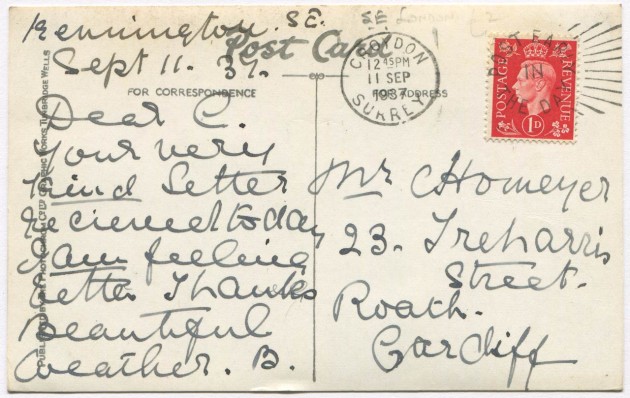 Kennington. S.E.
Sept 11. 37.
Post Card
FOR CORRESPONDENCE
ADDRESS
Dear C.
Your very
kind Letter
recieved today
I am feeling
better Thanks
beautiful
weather. B.
Mr C Homeyer
23. Treharris
Street.
Roath.
Cardiff
CROYDON
12 45PM
11 SEP
1937
SURREY
POSTAGE
REVENUE
1D
POST EARLY
IN
THE DAY
LONDON